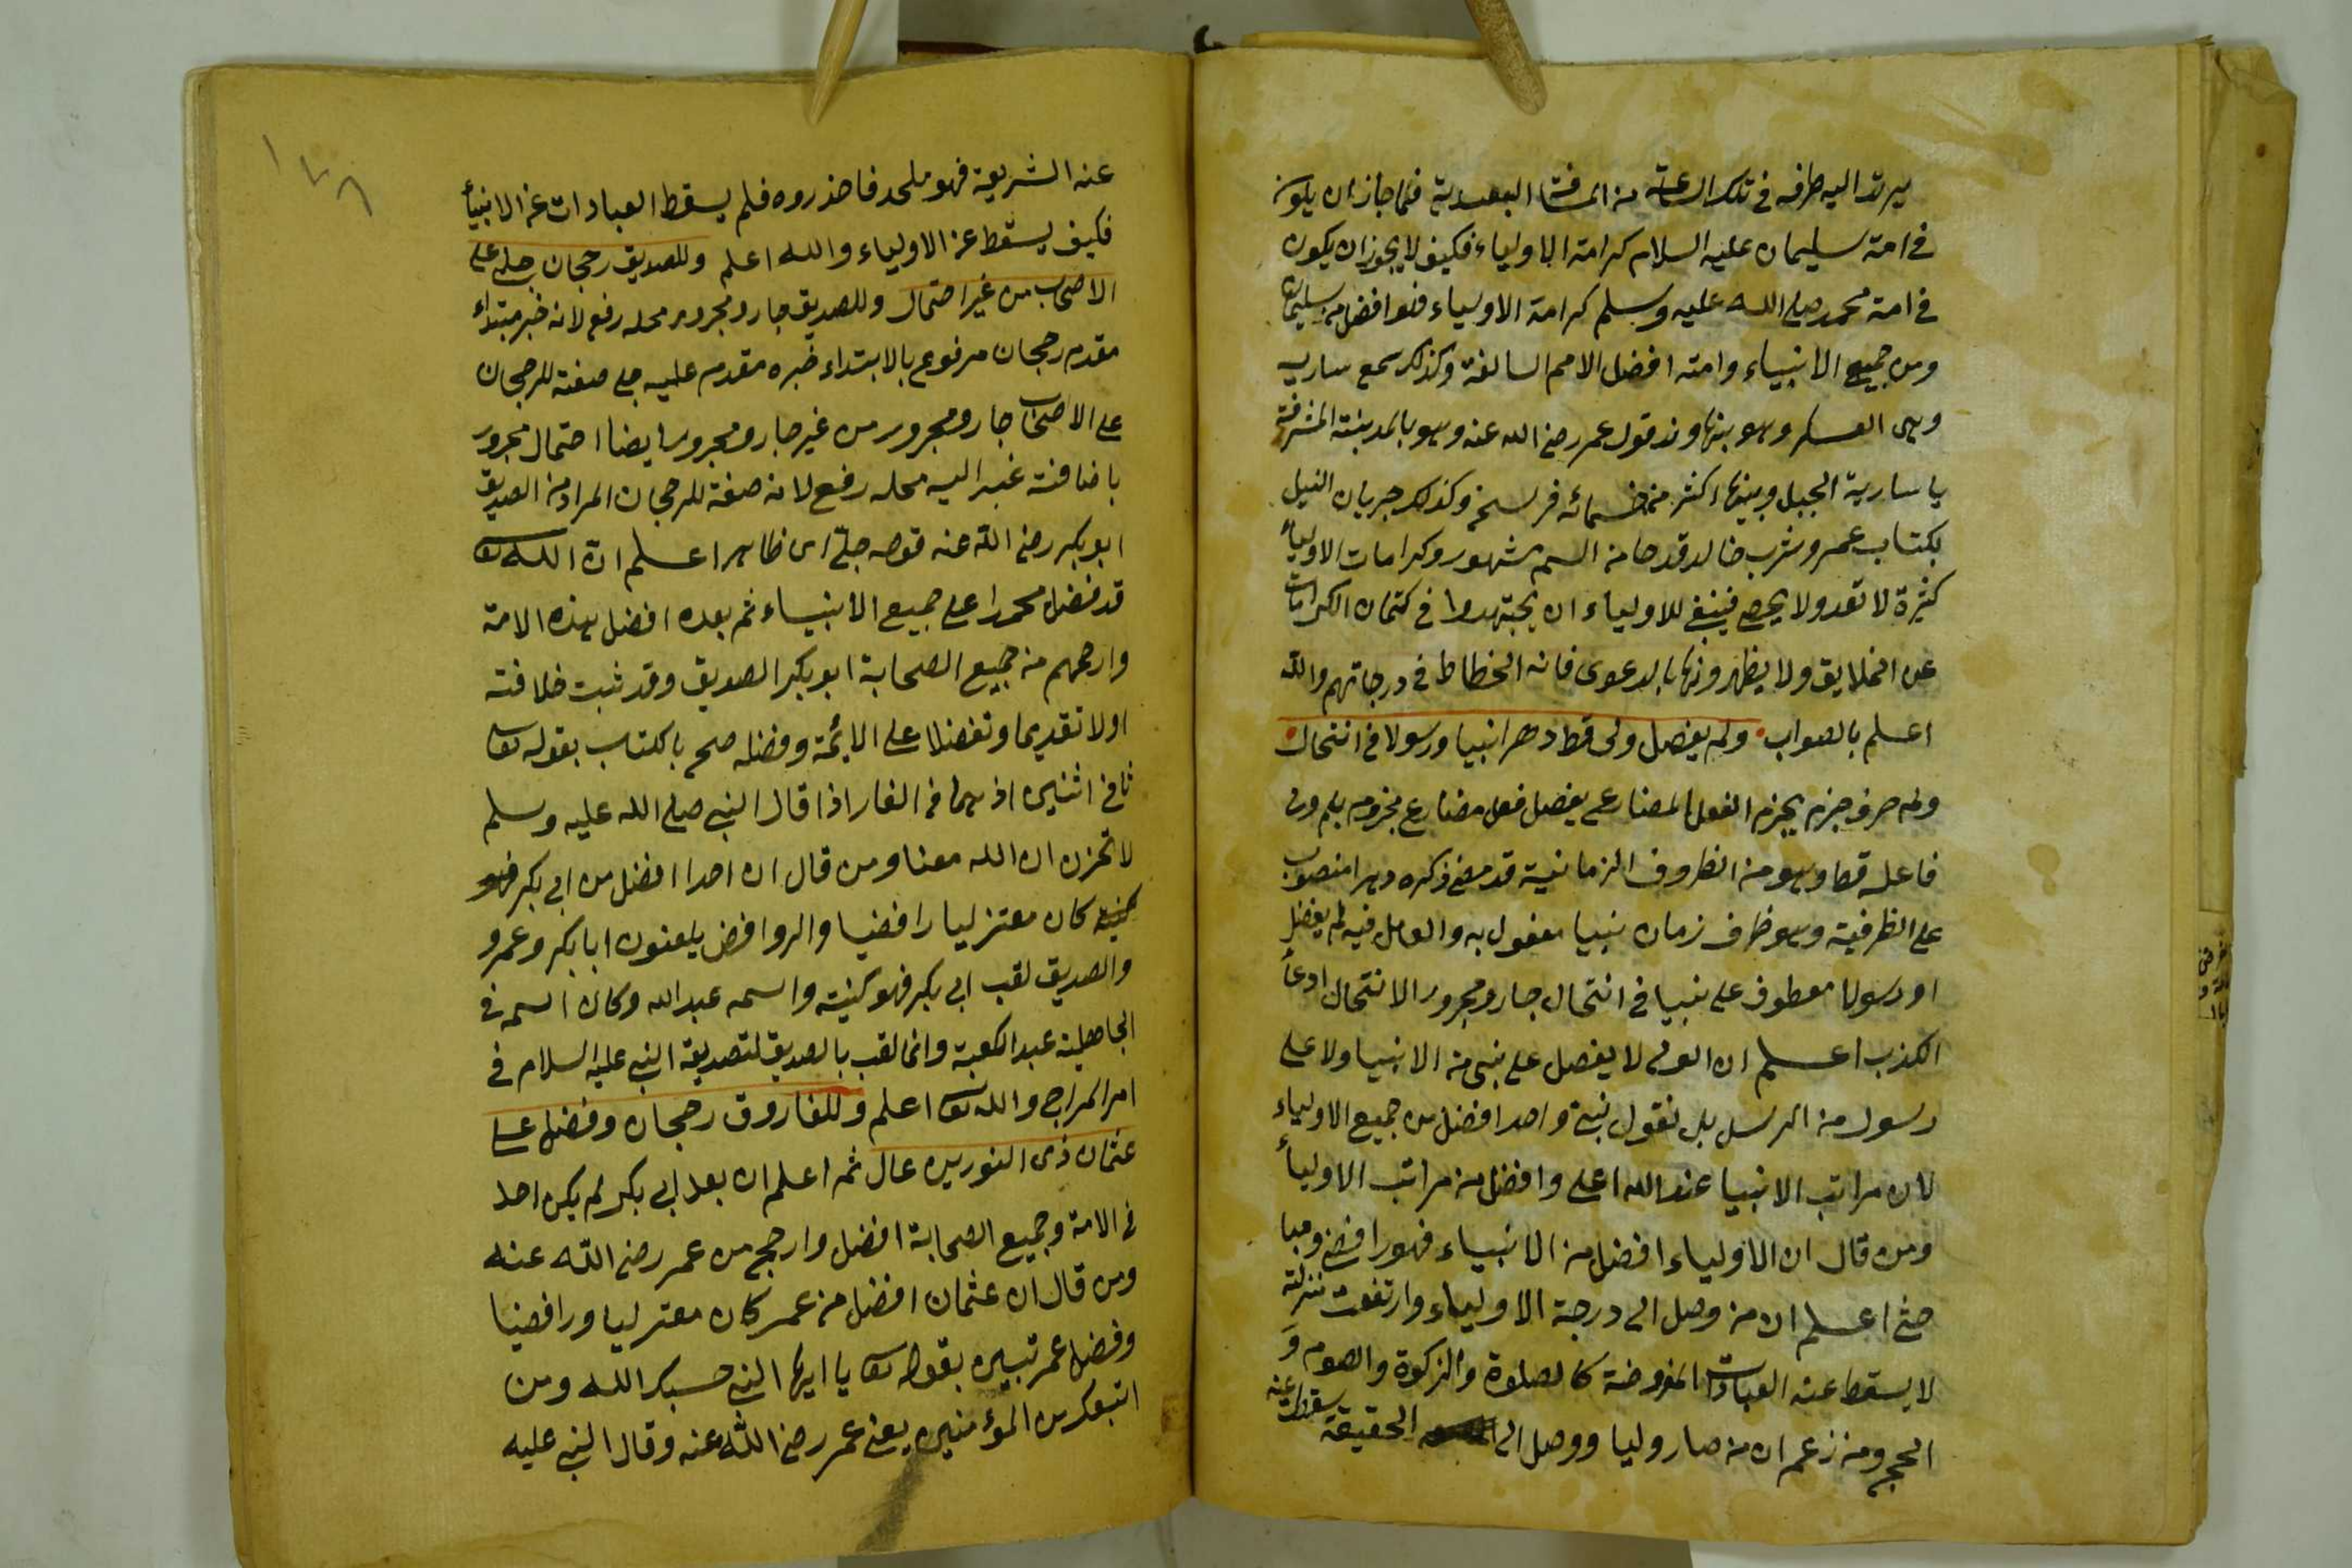 يرتد اليه طرفه في تلك الساعة من المسافة البعيدية فلما جاز ان يكون
في امة سليمان عليه السلام كرامة الاولياء فكيف لا يجوز ان يكون
في امة محمد صلى الله عليه وسلم كرامة الاولياء فهو افضل من سليمان
ومن جميع الانبياء وامته افضل الامم السالفة وكذلك سمع سارية
وهى العسكر وهو بنهاوند قول عمر رضى الله عنه وهو بالمدينة المشرفة
يا سارية الجبل وبينهما اكثر من خمسمائه فرسخ وكذلك جريان النيل
بكتاب عمر وشرب خالد قدحا من السم مشهور وكرامات الاولياء
كثيرة لا تعد ولا يحصى فينبغى للاولياء ان يجتهدوا في كتمان الكرامات
عن الخلايق ولا يظهرونها بالدعوى فانه انحطاط في درجاتهم والله
اعلم بالصواب ولم يفضل ولى قط دهر انبيا ورسولا في انتحال
ولم حرف جزم يجزم الفعل المضارع يفضل فعل مضارع مجزوم بلم ولى
فاعله قط وهو من الظروف الزمانية قد مضى ذكره دهرا منصوب
على الظرفية وهو ظرف زمان نبيا مفعول به والعامل فيه لم يفضل
او رسولا معطوف على نبيا في انتحال جار ومجرور الانتحال ادعاء
الكذب اعلم ان الولى لا يفضل على نبى من الانبيا ولا على
رسول من الرسل بل نقول نبى واحد افضل من جميع الاولياء
لان مراتب الانبيا عند الله اعلى وافضل من مراتب الاولياء
ومن قال ان الاولياء افضل من الانبياء فهو رافضى
اعلم ان من وصل الى درجة الاولياء وارتفعت منزلته
لا يسقط عنه العبادات المفروضة كالصلوة والزكوة والصوم و
الحج ومن زعم ان من صار وليا ووصل الى الحقيقة سقطت عنه
١٢٨
عنه الشريعة فهو ملحد فاحذروه فلم يسقط العبادات عن الانبياء
فكيف يسقط عن الاولياء والله اعلم وللصديق رجحان جلى على
الاصحاب من غير احتمال وللصديق جار ومجرور محله رفع لانه خبر مبتداء
مقدم رجحان مرفوع بالابتداء خبره مقدم عليه جلى صفة للرجحان
على الاصحاب جار ومجرور من غير جار ومجرور ايضا احتمال مجرور
باضافة غير اليه محله رفع لانه صفة للرجحان المراد من الصديق
ابو بكر رضى الله عنه قوله جلىّ اى ظاهر اعلم ان الله تعا
قد فضل محمدا على جميع الانبياء ثم بعده افضل هذه الامة
وارجحهم من جميع الصحابة ابو بكر الصديق وقد ثبت خلافته
اولا تقديما وتفضلا على الائمة وفضله صح بالكتاب بقوله تعا
ثانى اثنين اذ هما في الغار اذا قال النبى صلى الله عليه وسلم
لا تحزن ان الله معنا ومن قال ان احدا افضل من ابى بكر فهو
كان معتزليا رافضيا والروافض يلعنون ابا بكر وعمر و
والصديق لقب ابى بكر فهو كنيته واسمه عبد الله وكان اسمه في
الجاهلية عبد الكعبة وانما لقب بالصديق لتصديقه النبى عليه السلام في
امر المعراج والله تعا اعلم وللفاروق رجحان وفضل على
عثمان ذى النورين عال ثم اعلم ان بعد ابى بكر لم يكن احد
في الامة وجميع الصحابة افضل وارجح من عمر رضى الله عنه
ومن قال ان عثمان افضل من عمر كان معتزليا ورافضيا
وفضل عمر تبين بقوله تعا يا ايها النبى حسبك الله ومن
اتبعك من المؤمنين يعنى عمر رضى الله عنه وقال النبى عليه